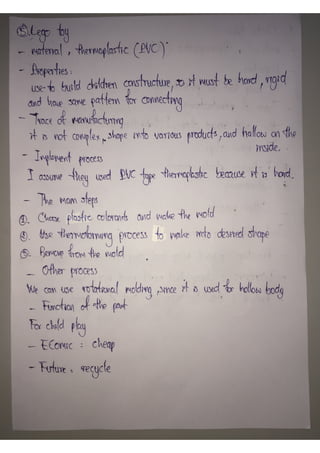 ⑤ Lego toy
- material, thermoplastic (PVC)
- Properties:
use to build children constructure, so it must be hard, rigid
and have same pattern for connecting
- Trace of manufacturing
it is not complex, shape into various products, and hallow on the
inside.
- Implement process
I assume they used PVC type thermoplastic because it is hard.
- The main steps
①. Choose plastic colorants and make the mold
②. Use thermoforming process to make into desired shape
③. Remove from the mold
- Other process
We can use rotational molding, since it is used for hollow body
- Function of the part
For child play
- Econic : cheap
- Future : recycle